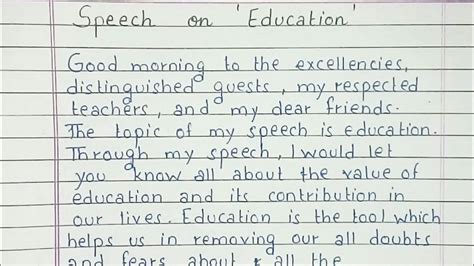 Speech on 'Education'
Good morning to the excellencies,
distinguished guests, my respected
teachers, and my dear friends.
The topic of my speech is education.
Through my speech, I would let
you know all about the value of
education and its contribution in
our lives. Education is the tool which
helps us in removing our all doubts
and fears about & all the